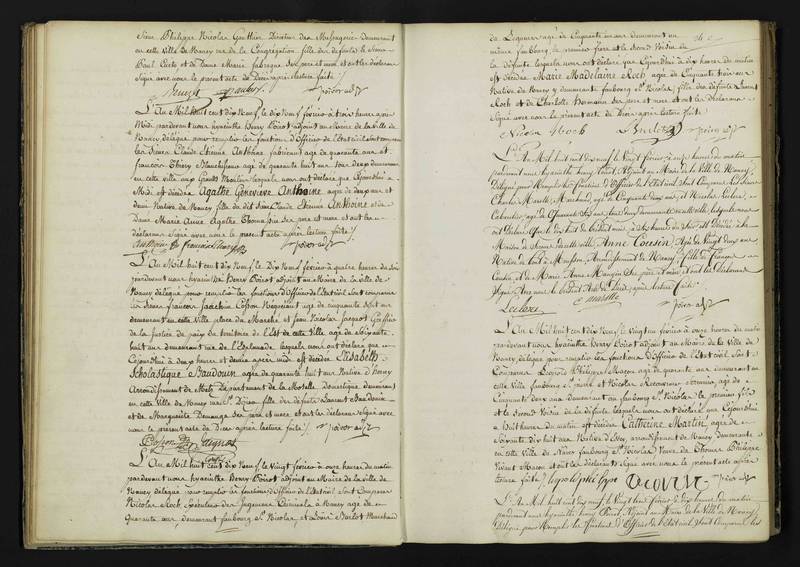 Sieur Philippe Nicolas Gauthier Directeur des Messageries demeurant
en cette Ville de Nancy rue de la Congrégation fille des défunts le Sieur
Paul et de Dame Marie fabrique ses père et mère et ont les déclarans
Signé avec nous le présent acte de Décès après lecture faite
poirot adjt
L'An Mil huit cent dix Neuf, le dix Neuf février à trois heures après
Midi pardevant nous hyacinthe Henry Poirot adjoint au Maire de la Ville de
Nancy délégué pour remplir les fonctions d'Officier de l'Etat civil sont comparus
les Sieurs Claude Etienne Anthoine fabricant age de quarante ans et
francois Thiery age de quarante huit ans tous deux demeurant
en cette Ville lesquels nous ont déclaré que Cejourd'hui à
Midi est décédée Agathe Geneviève Anthoine agée de deux ans et
demi Native de Nancy fille du dit Sieur Claude Etienne Anthoine et de
Dame Marie Anne Agathe Thomassin ses père et mère et ont les
déclarans Signé avec nous le présent acte après lecture faite
Anthoine poirot adjt
L'An Mil huit cent dix Neuf, le Dix Neuf février à quatre heures du soir
pardevant nous hyacinthe Henry Poirot adjoint au Maire de la ville de
Nancy délégué pour remplir les fonctions d'Officier de l'Etat civil sont comparus
les Sieurs francois Joachim Cosson Négociant age de cinquante Sept ans
demeurant en cette Ville place du Marché et Jean Nicolas Jacquot Greffier
de la Justice de paix du territoire de l'Est de cette Ville age de Soixante
huit ans demeurant rue de l'Esplanade lesquels nous ont déclaré que
Cejourd'hui à deux heures et demie après midi est décédée Elisabeth
Scholastique Baudouin agée de quarante huit ans Native d'
Arrondissement de Metz Departement de la Moselle domestique demeurant
en cette Ville de Nancy rue St. Dizier fille des défunts Laurent Baudouin
et de Marguerite ses père et mère et ont les déclarans Signé avec
nous le présent acte de Décès après lecture faite
poirot adjt
L'An Mil huit cent dix Neuf, le Vingt février à onze heures du matin
pardevant nous hyacinthe Henry Poirot adjoint au Maire de la Ville de
Nancy délégué pour remplir les fonctions d'Officier de l'Etat civil sont Comparus
Nicolas Roch, des Jugemens Criminels à Nancy age de
Quarante ans, demeurant faubourg St. Nicolas, et Louis Burlot Marchand
age de Cinquante ans demeurant au
même faubourg le premier frère et le Second Voisin de
la défunte lesquels nous ont déclaré que Cejourd'hui à dix heures du matin
est décédée Marie Madelaine Roch agée de Cinquante trois ans
Native de Nancy y demeurante faubourg St. Nicolas, fille des défunts Laurent
Roch et de Charlotte ses père et mère et ont les déclarans
Signé avec nous le présent acte de Décès après lecture faite
Nicolas Roch Burlot poirot adjt
L'An Mil huit cent dix neuf, le Vingt février à onze heures du matin
pardevant nous hyacinthe henry Poirot, Adjoint au Maire de la Ville de Nancy,
Délégué pour Remplir les fonctions d'Officier de l'Etat civil, Sont Comparus les Sieurs
Charles Marotte, Marchand, age de Cinquante Deux ans, et Nicolas Leclere,
Cabaretier, age de Cinquante ans, tous Deux Demeurant en cette Ville, lesquels nous
ont Déclaré
Maison de Secours de cette Ville, Anne Coresin Agée de Vingt Deux ans
Native de Pont à Mousson, Arrondissement de Nancy, fille de François
Coresin, et de Marie Anne Mangin Ses père et mère, et ont les Déclarans
Signé Avec nous le présent Acte de Décès, après lecture faite
Leclere C marotte poirot adjt
L'An Mil huit cent dix Neuf, le Vingt un février à onze heures du matin
pardevant nous hyacinthe Henry Poirot adjoint au Maire de la Ville de
Nancy délégué pour remplir les fonctions d'Officier de l'Etat civil Sont
Comparus Léopold Philippe Maçon age de quarante ans demeurant en
cette Ville faubourg St. pierre et Nicolas age de
Cinquante deux ans demeurant au faubourg St. Nicolas le premier fils
et le Second Voisin de la défunte lesquels nous ont déclaré que Cejourd'hui
à huit heures du matin est décédée Catherine Martin, agée de
Soixante dix huit ans Native de arrondissement de Nancy demeurante
en cette Ville de Nancy faubourg St. Nicolas Veuve de Thomas Philippe
Vivant Maçon et ont les déclarans Signé avec nous le présent acte après
lecture faite poirot adjt
L'An Mil huit cent dix neuf, le Vingt février à dix heures du matin
pardevant nous hyacinthe henry Poirot, Adjoint au Maire de la Ville de Nancy
Délégué pour Remplir les fonctions d'Officier de l'Etat civil, Sont Comparus les